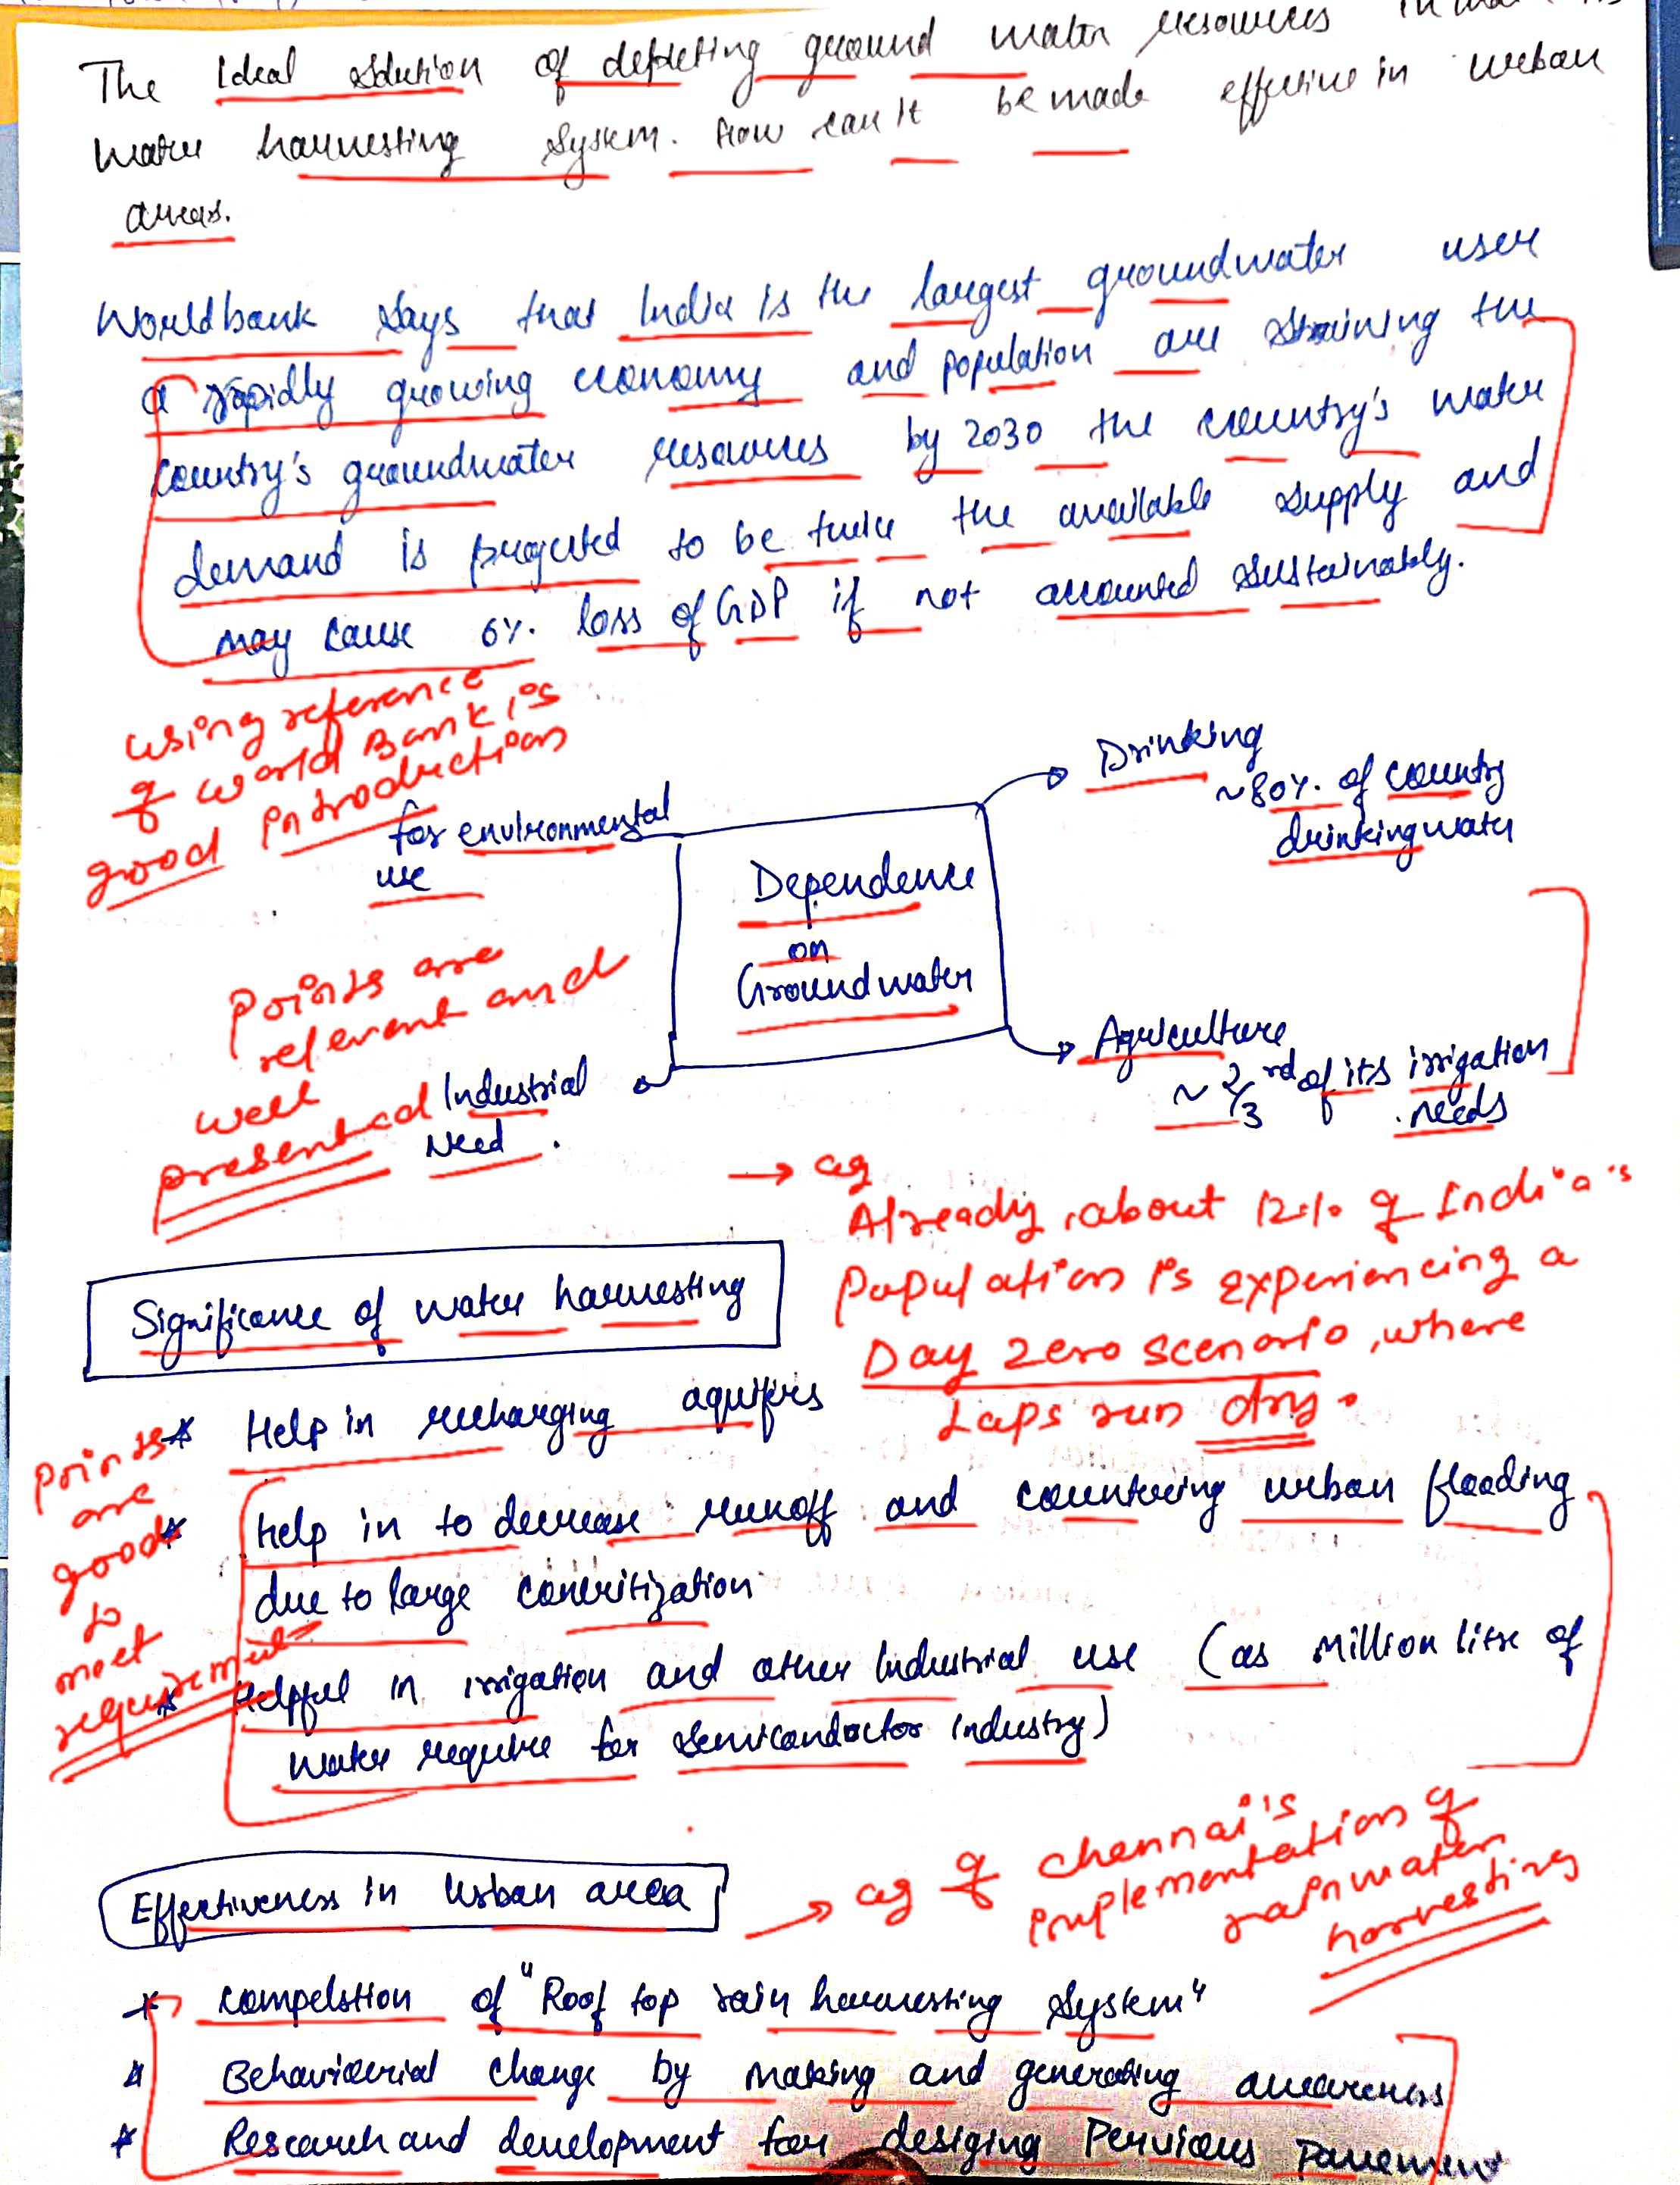 The Ideal solution of depleting ground water resources in
water harvesting system. How can it be made effective in urban
areas.
World bank says that India is the largest groundwater user
a rapidly growing economy and population are straining the
country's groundwater resources by 2030 the country's water
demand is projected to be twice the available supply and
may cause 6% loss of GDP if not accounted sustainably.
using reference
of world Bank is
good introduction
for environmental
use
Dependence
on
Groundwater
Drinking
~80%. of country
drinking water
Points are
relevant and
well
presented
Industrial
Need.
Agriculture
~ 2/3 rd of its irrigation
needs
→ eg
Already, about 12% of India's
population is experiencing a
Day zero scenario, where
taps run dry.
Significance of water harvesting
* Help in recharging aquifers
* Help in to decrease runoff and countering urban flooding
due to large concritization
* Helpful in irrigation and other Industrial use (as million litre of
water require for semiconductor industry)
Points
are
good
to
meet
requirement
Effectiveness in Urban area
→ eg of chennai's
implementation of
rainwater
harvesting
* Compelstion of "Roof top rain harvesting system"
* Behaviourial change by making and generating awareness
* Research and development for desiging Pervious Pavement